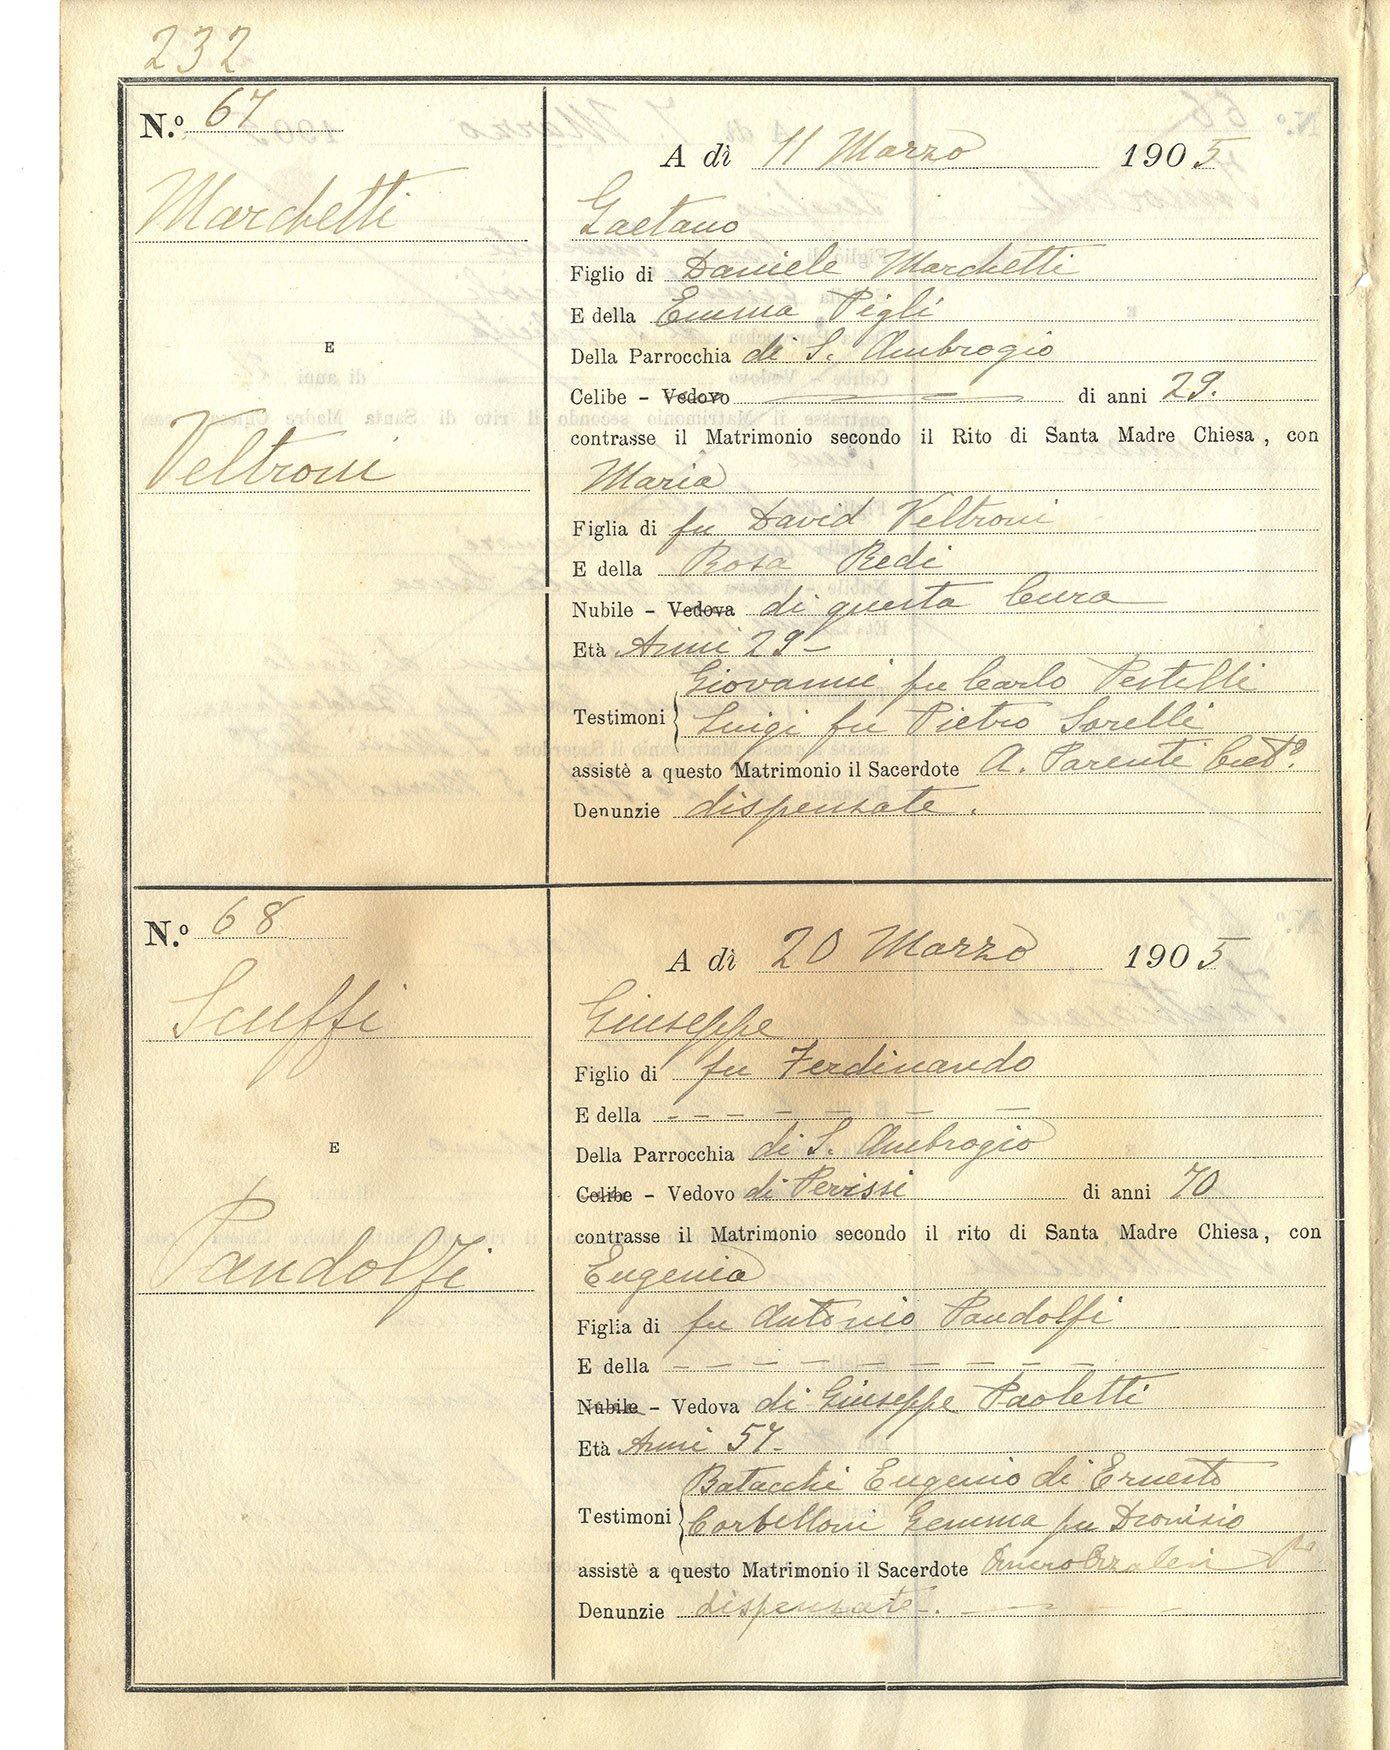 232
N.º 67
A dì 11 Marzo 1905
Marchetti
Gaetano
Figlio di Daniele Marchetti
E della Emma Pigli
E
Della Parrocchia di S. Ambrogio
Celibe – Vedovo di anni 29.
contrasse il Matrimonio secondo il Rito di Santa Madre Chiesa, con
Veltroni
Maria
Figlia di fu David Veltroni
E della Rosa Redi
Nubile – Vedova di questa Cura
Età Anni 29 –
Giovanni fu Carlo Pestelli
Testimoni Luigi fu Pietro Sorelli
assistè a questo Matrimonio il Sacerdote A. Parenti
Denunzie dispensate.
N.º 68
A dì 20 Marzo 1905
Scuffi
Giuseppe
Figlio di fu Ferdinando
E della – – – – – – – –
E
Della Parrocchia di S. Ambrogio
Celibe – Vedovo di Perissi di anni 70
contrasse il Matrimonio secondo il rito di Santa Madre Chiesa, con
Pandolfi
Eugenia
Figlia di fu Antonio Pandolfi
E della – – – – – – – – –
Nubile – Vedova di Giuseppe Paoletti
Età Anni 57 –
Batacchi Eugenio di Ernesto
Testimoni Corbelloni Gemma fu Dionisio
assistè a questo Matrimonio il Sacerdote
Denunzie dispensate –.